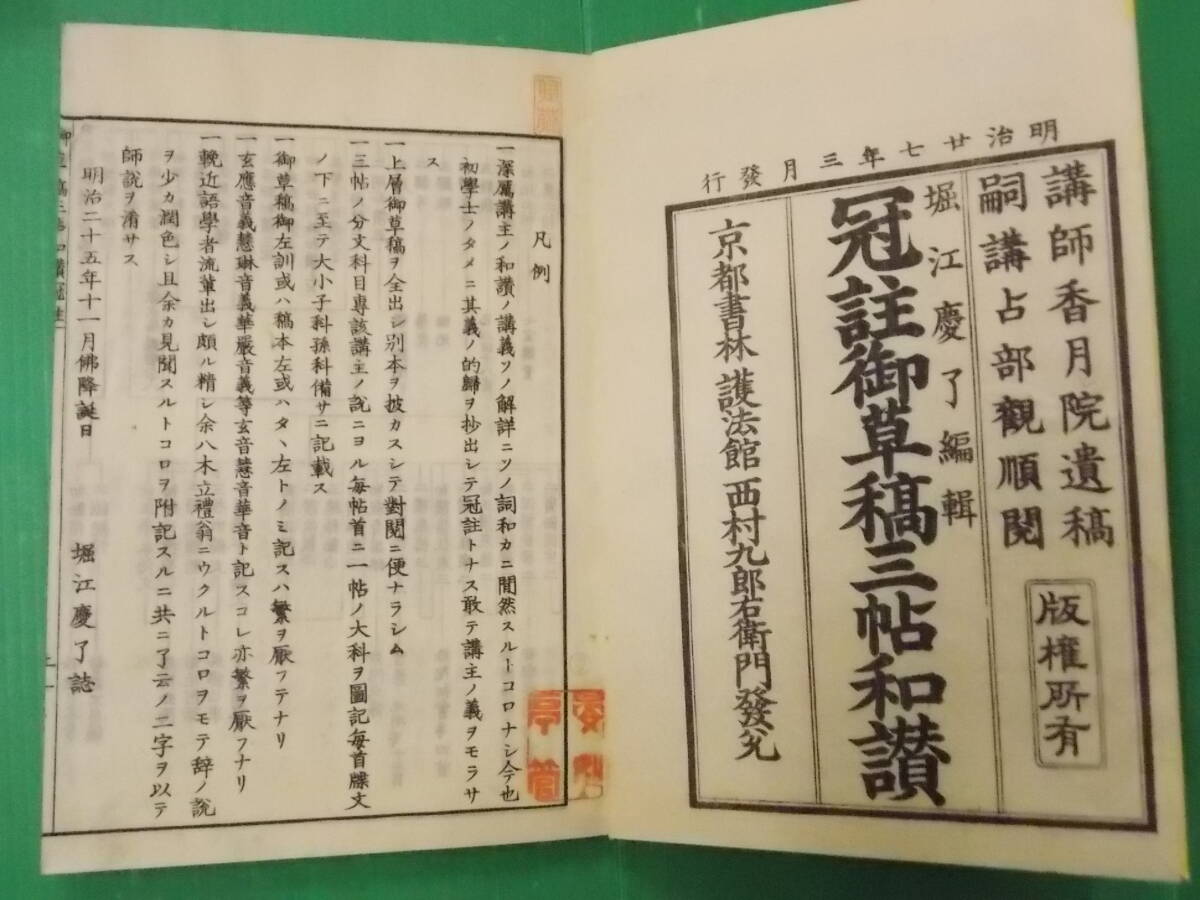 明治廿七年三月發行
講師香月院遺稿
嗣講占部觀順閱
版權所有
堀江慶了編輯
冠註御草稿三帖和讃
京都書林 護法館 西村九郎右衛門發兌
凡例
一深厲講主ノ和讃ノ講義ソノ解詳ニソノ詞和カニ間然スルトコロナシ今也
初學士ノタメニ其義ノ的歸ヲ抄出シテ冠註トナス敢テ講主ノ義ヲモラサ
ス
一上層御草稿ヲ全出シ別本ヲ披カスシテ對閱ニ便ナラシム
一三帖ノ分文科目專該講主ノ說ニヨル每帖首ニ一帖ノ大科ヲ圖記每首牒文
ノ下ニ至テ大小子科孫科備サニ記載ス
一御草稿御左訓或ハ稿本左或ハタヽ左トノミ記スハ繁ヲ厭フテナリ
一玄應音義慧琳音義華嚴音義等玄音慧音華音ト記スコレ亦繁ヲ厭フナリ
一輓近語學者流輩出シ頗ル精シ余八木立禮翁ニウクルトコロヲモテ辞ノ說
ヲ少カ潤色シ且余カ見聞スルトコロヲ附記スルニ共ニ了云ノ二字ヲ以テ
師說ヲ濆サス
明治二十五年十一月佛降誕日
堀江慶了誌